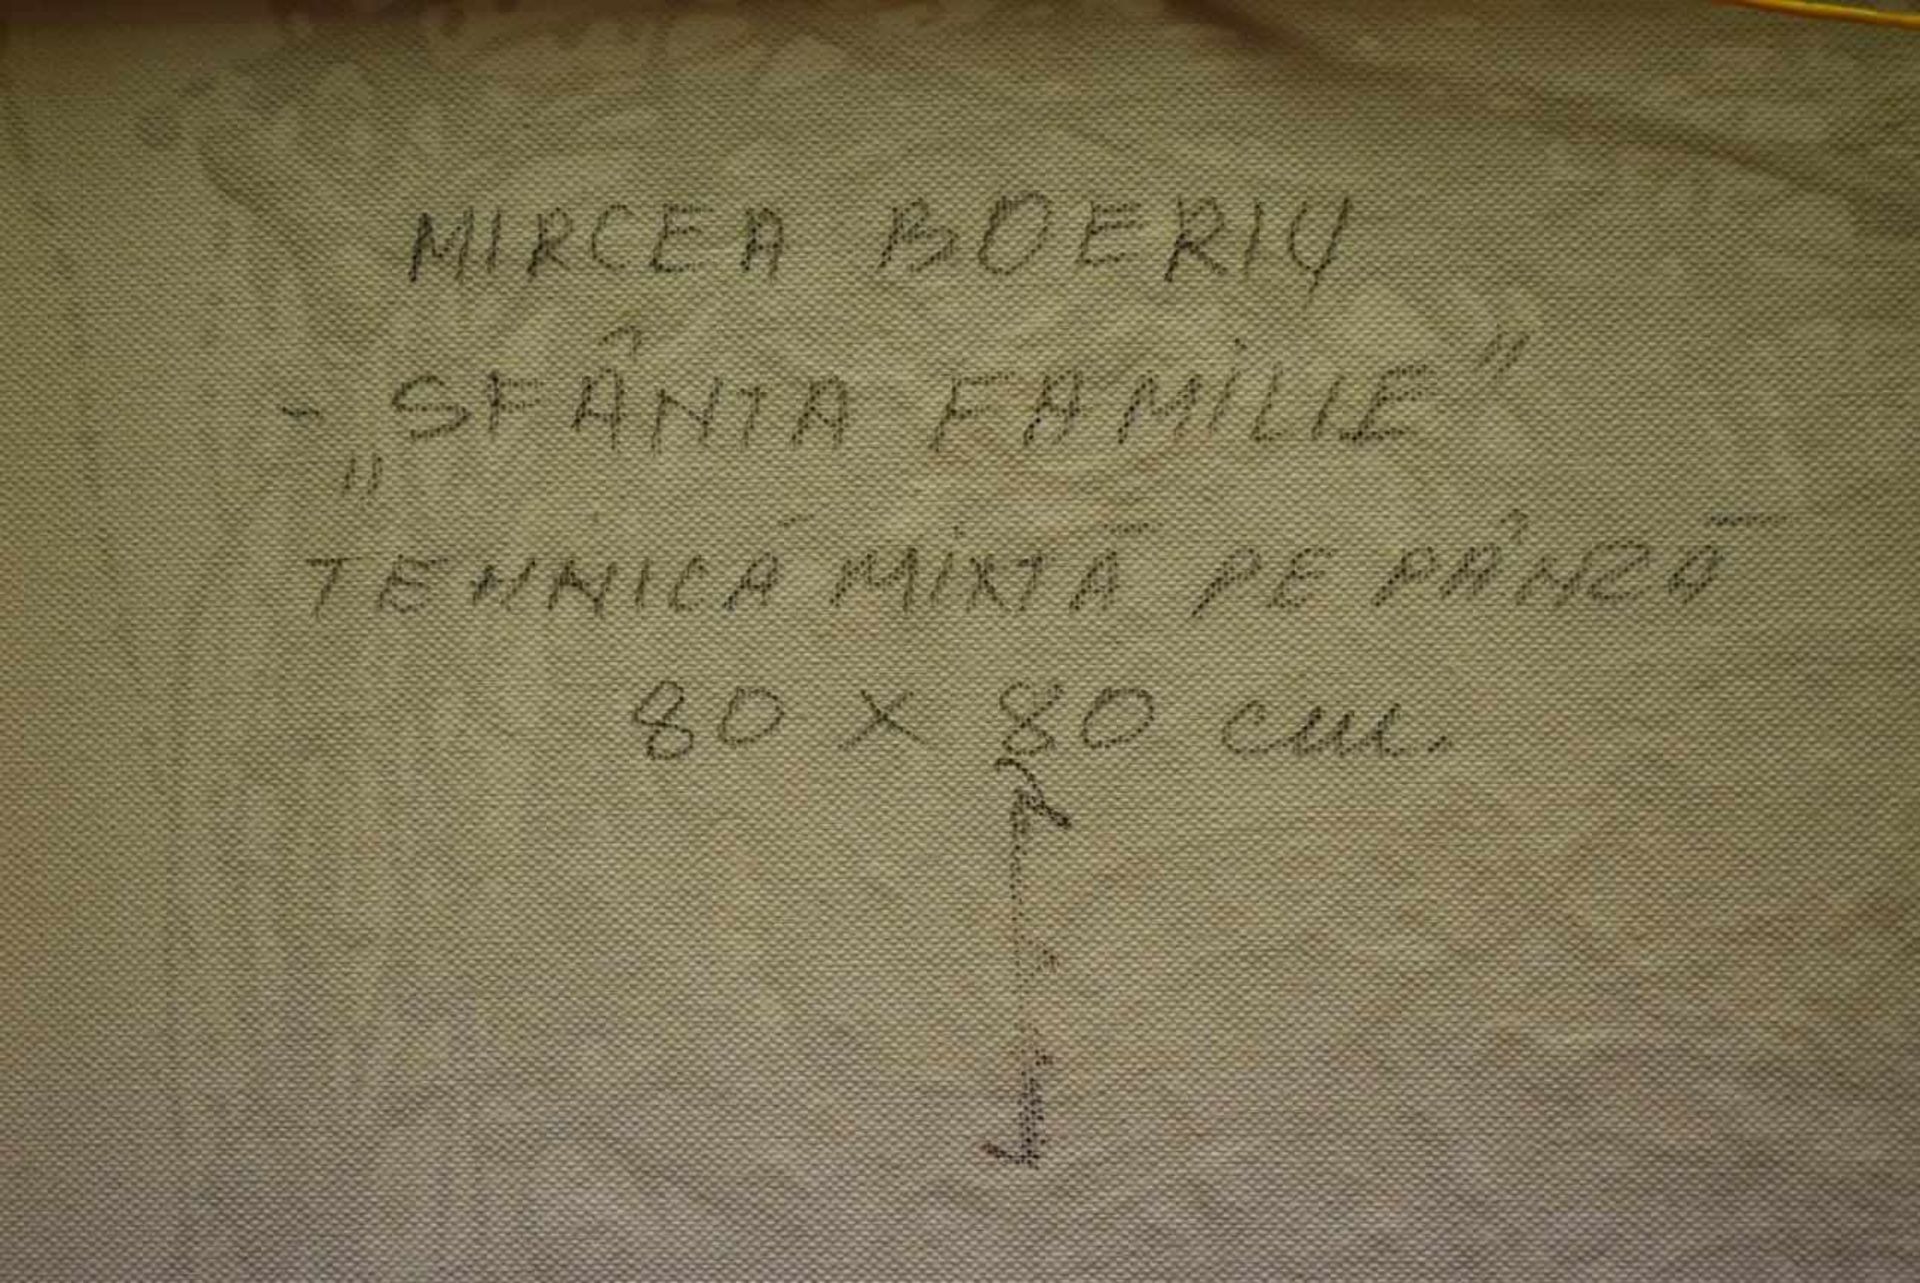 MIRCEA BOERIU
- „SFÂNTA FAMILIE”
TEHNICĂ MIXTĂ PE PÂNZĂ
80 x 80 cm.